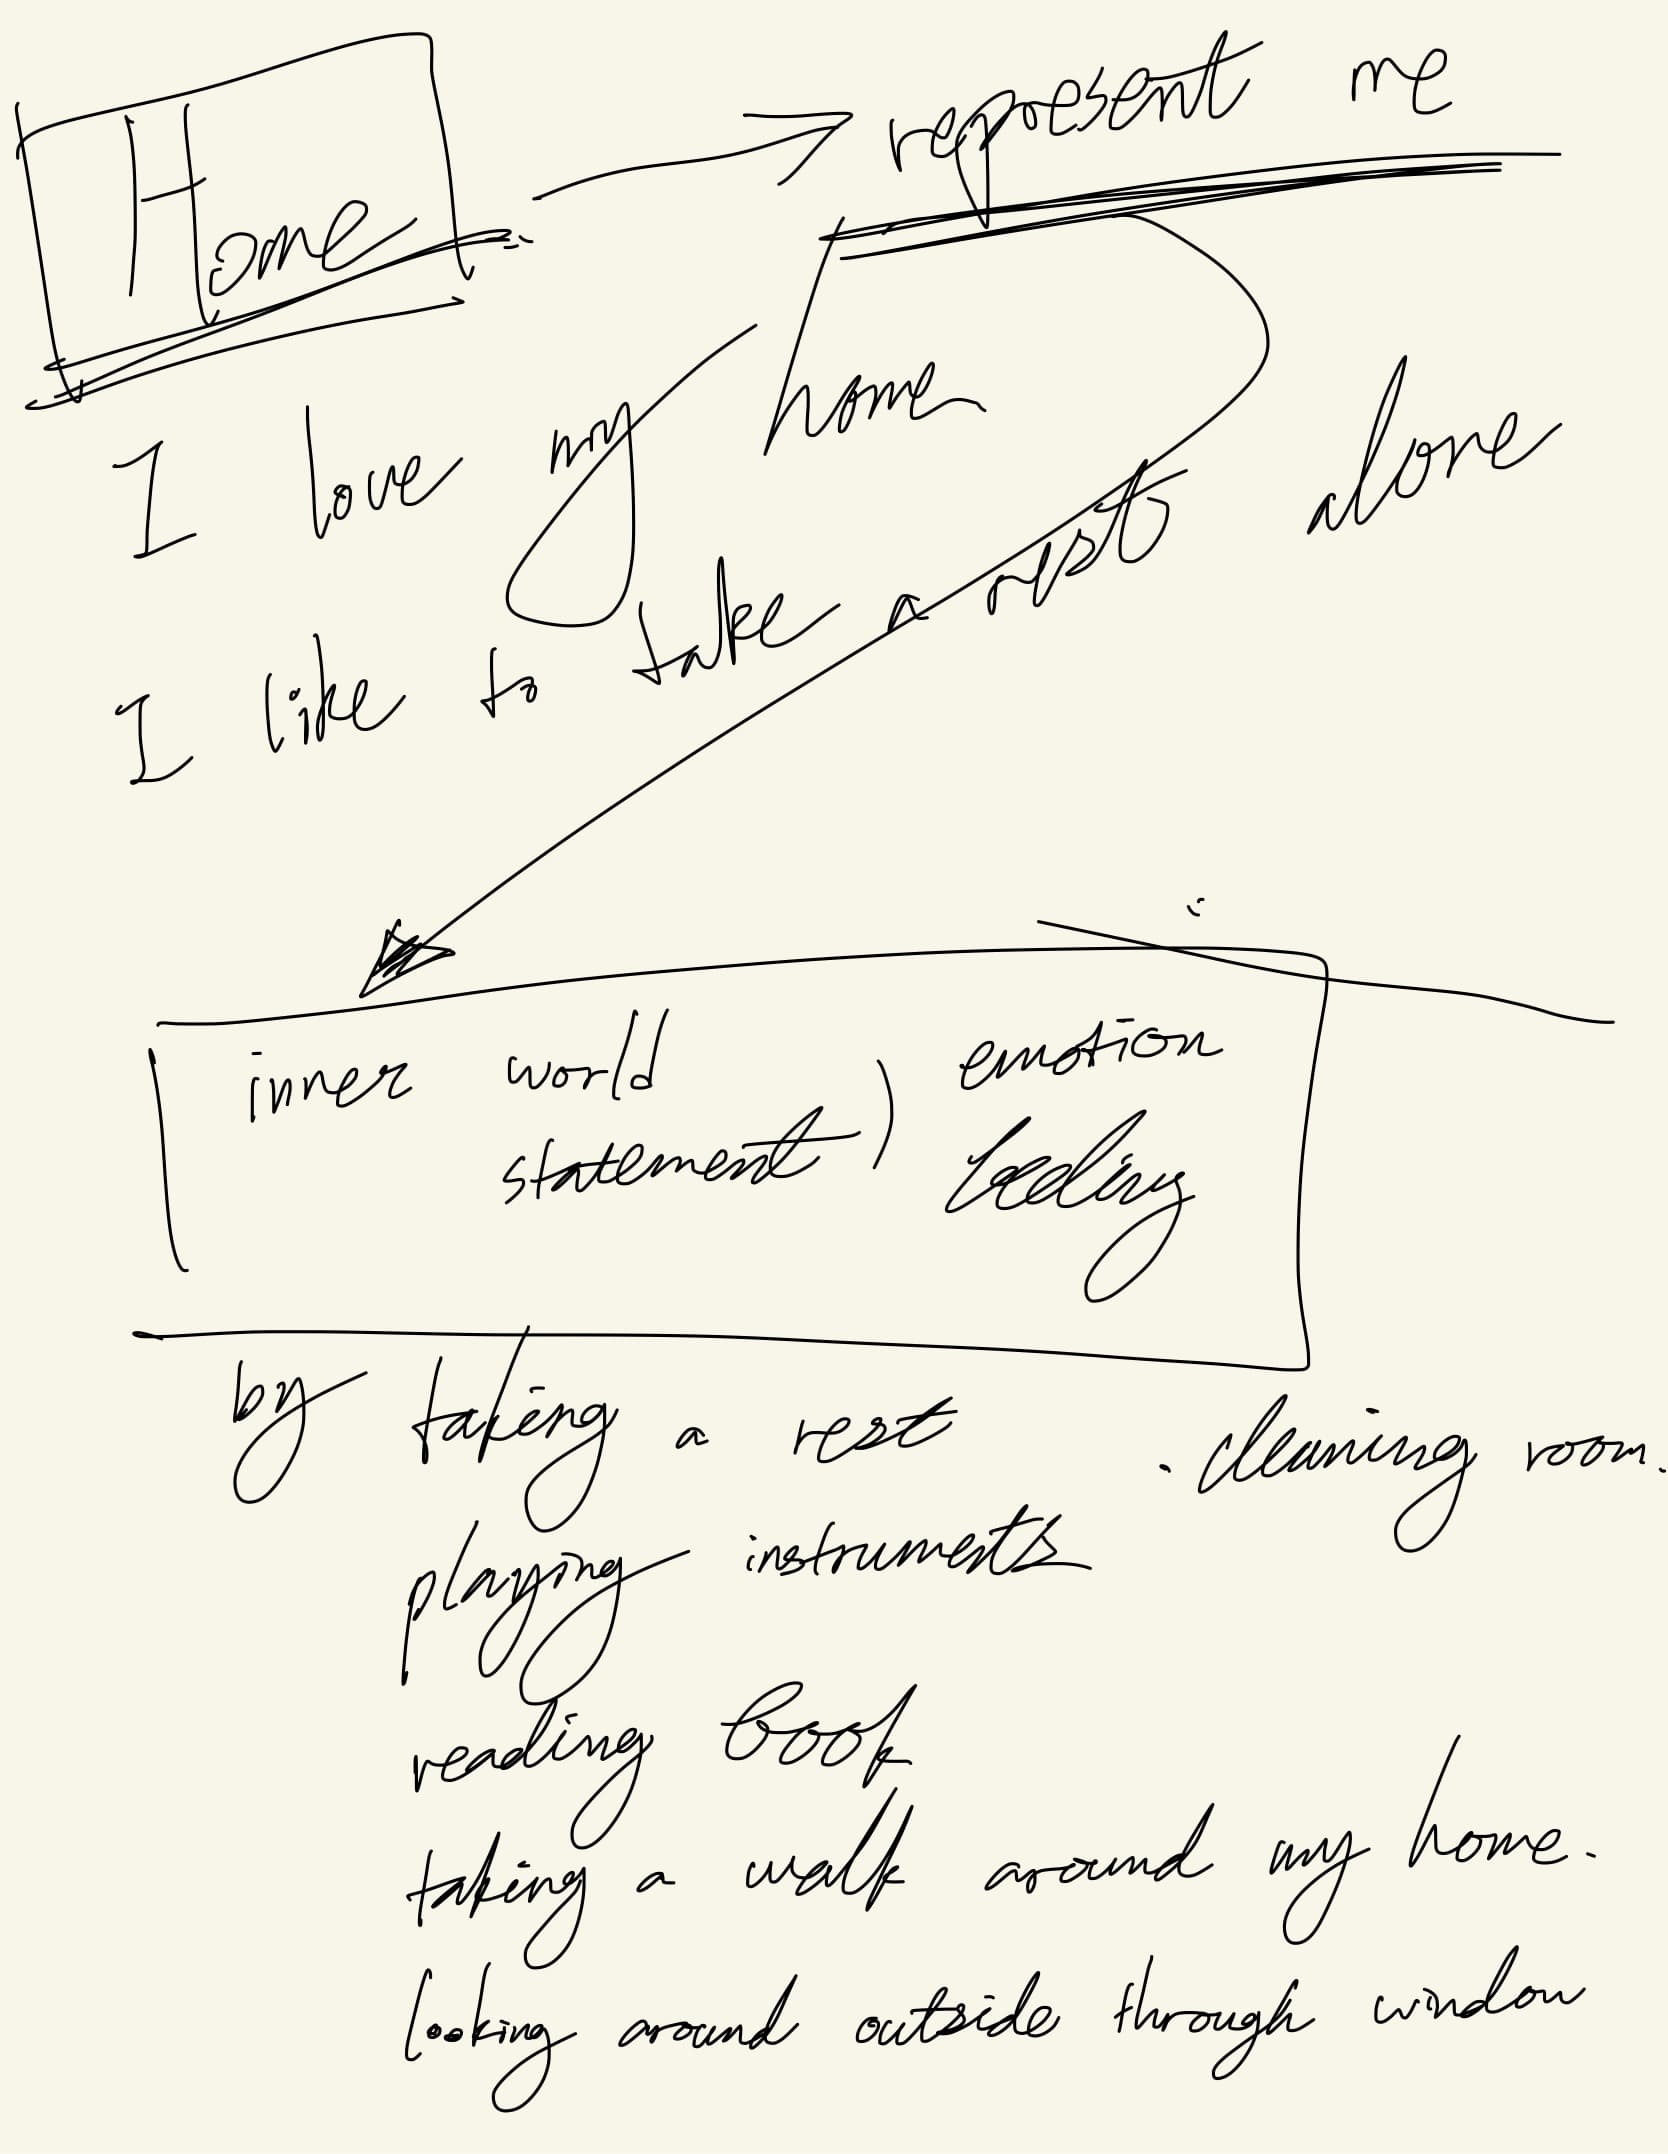 Home → represent me
I love my home
I like to take a rest alone
inner world emotion
statement )
by taking a rest . cleaning room.
playing instruments
reading book
taking a walk around my home.
looking around outside through window